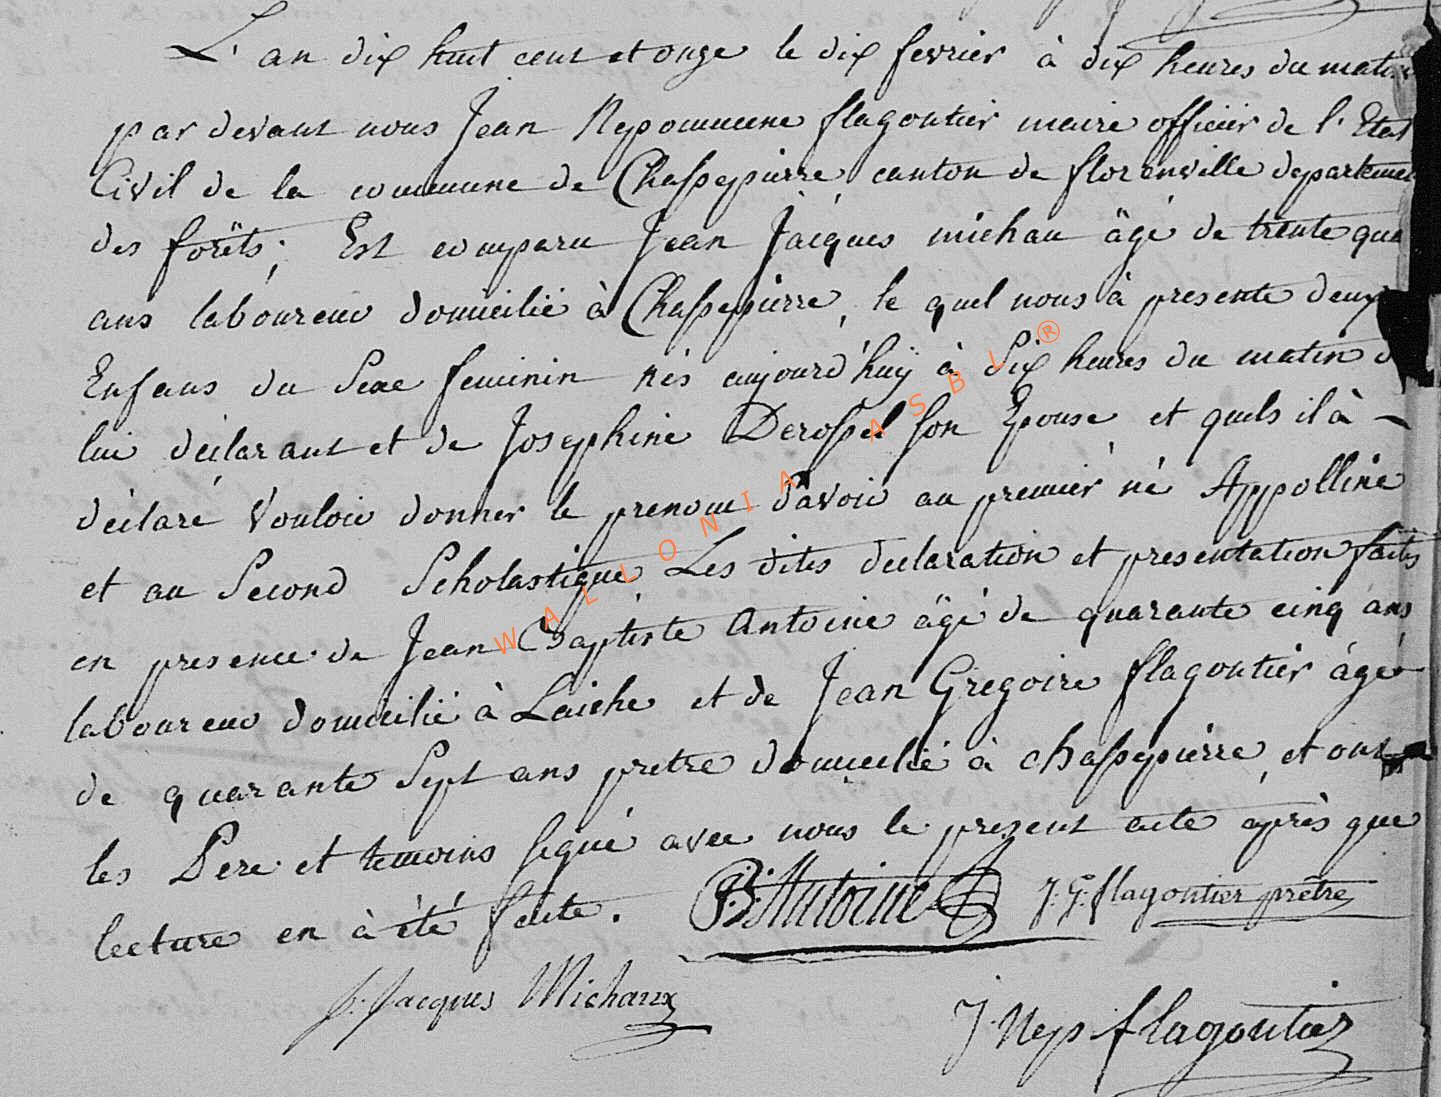 L'an dix huit cent et onze le dix fevrier à dix heures du matin
par devant nous Jean Nepomucene flagontier maire officier de l'Etat
Civil de la commune de Chassepierre canton de florenville departement
des forêts; Est comparu Jean Jacques michau âgé de trente qua
ans laboureur domicilié à Chassepierre, le quel nous à presente deux
Enfans du Sexe feminin nés aujourd'huy à Six heures du matin de
lui déclarant et de Josephine Derossel son Epouse et quels il à -
déclaré Vouloir donner le prenom Savoir au premier né Appolline
et au Second Scholastique Les dites declaration et presentation faites
en presence de Jean Baptiste Antoine âgé de quarante cinq ans
laboureur domicilié à Laiche et de Jean Gregoire flagontier âgé
de quarante Sept ans pretre domicilié à chassepierre, et ont
les Pere et temoins signé avec nous le present acte après que
lecture en à été faite.
JB. Antoine J. G. flagontier prêtre
J. Jacques Michaux
J. Nep flagontier
WALLONIA ASBL ®